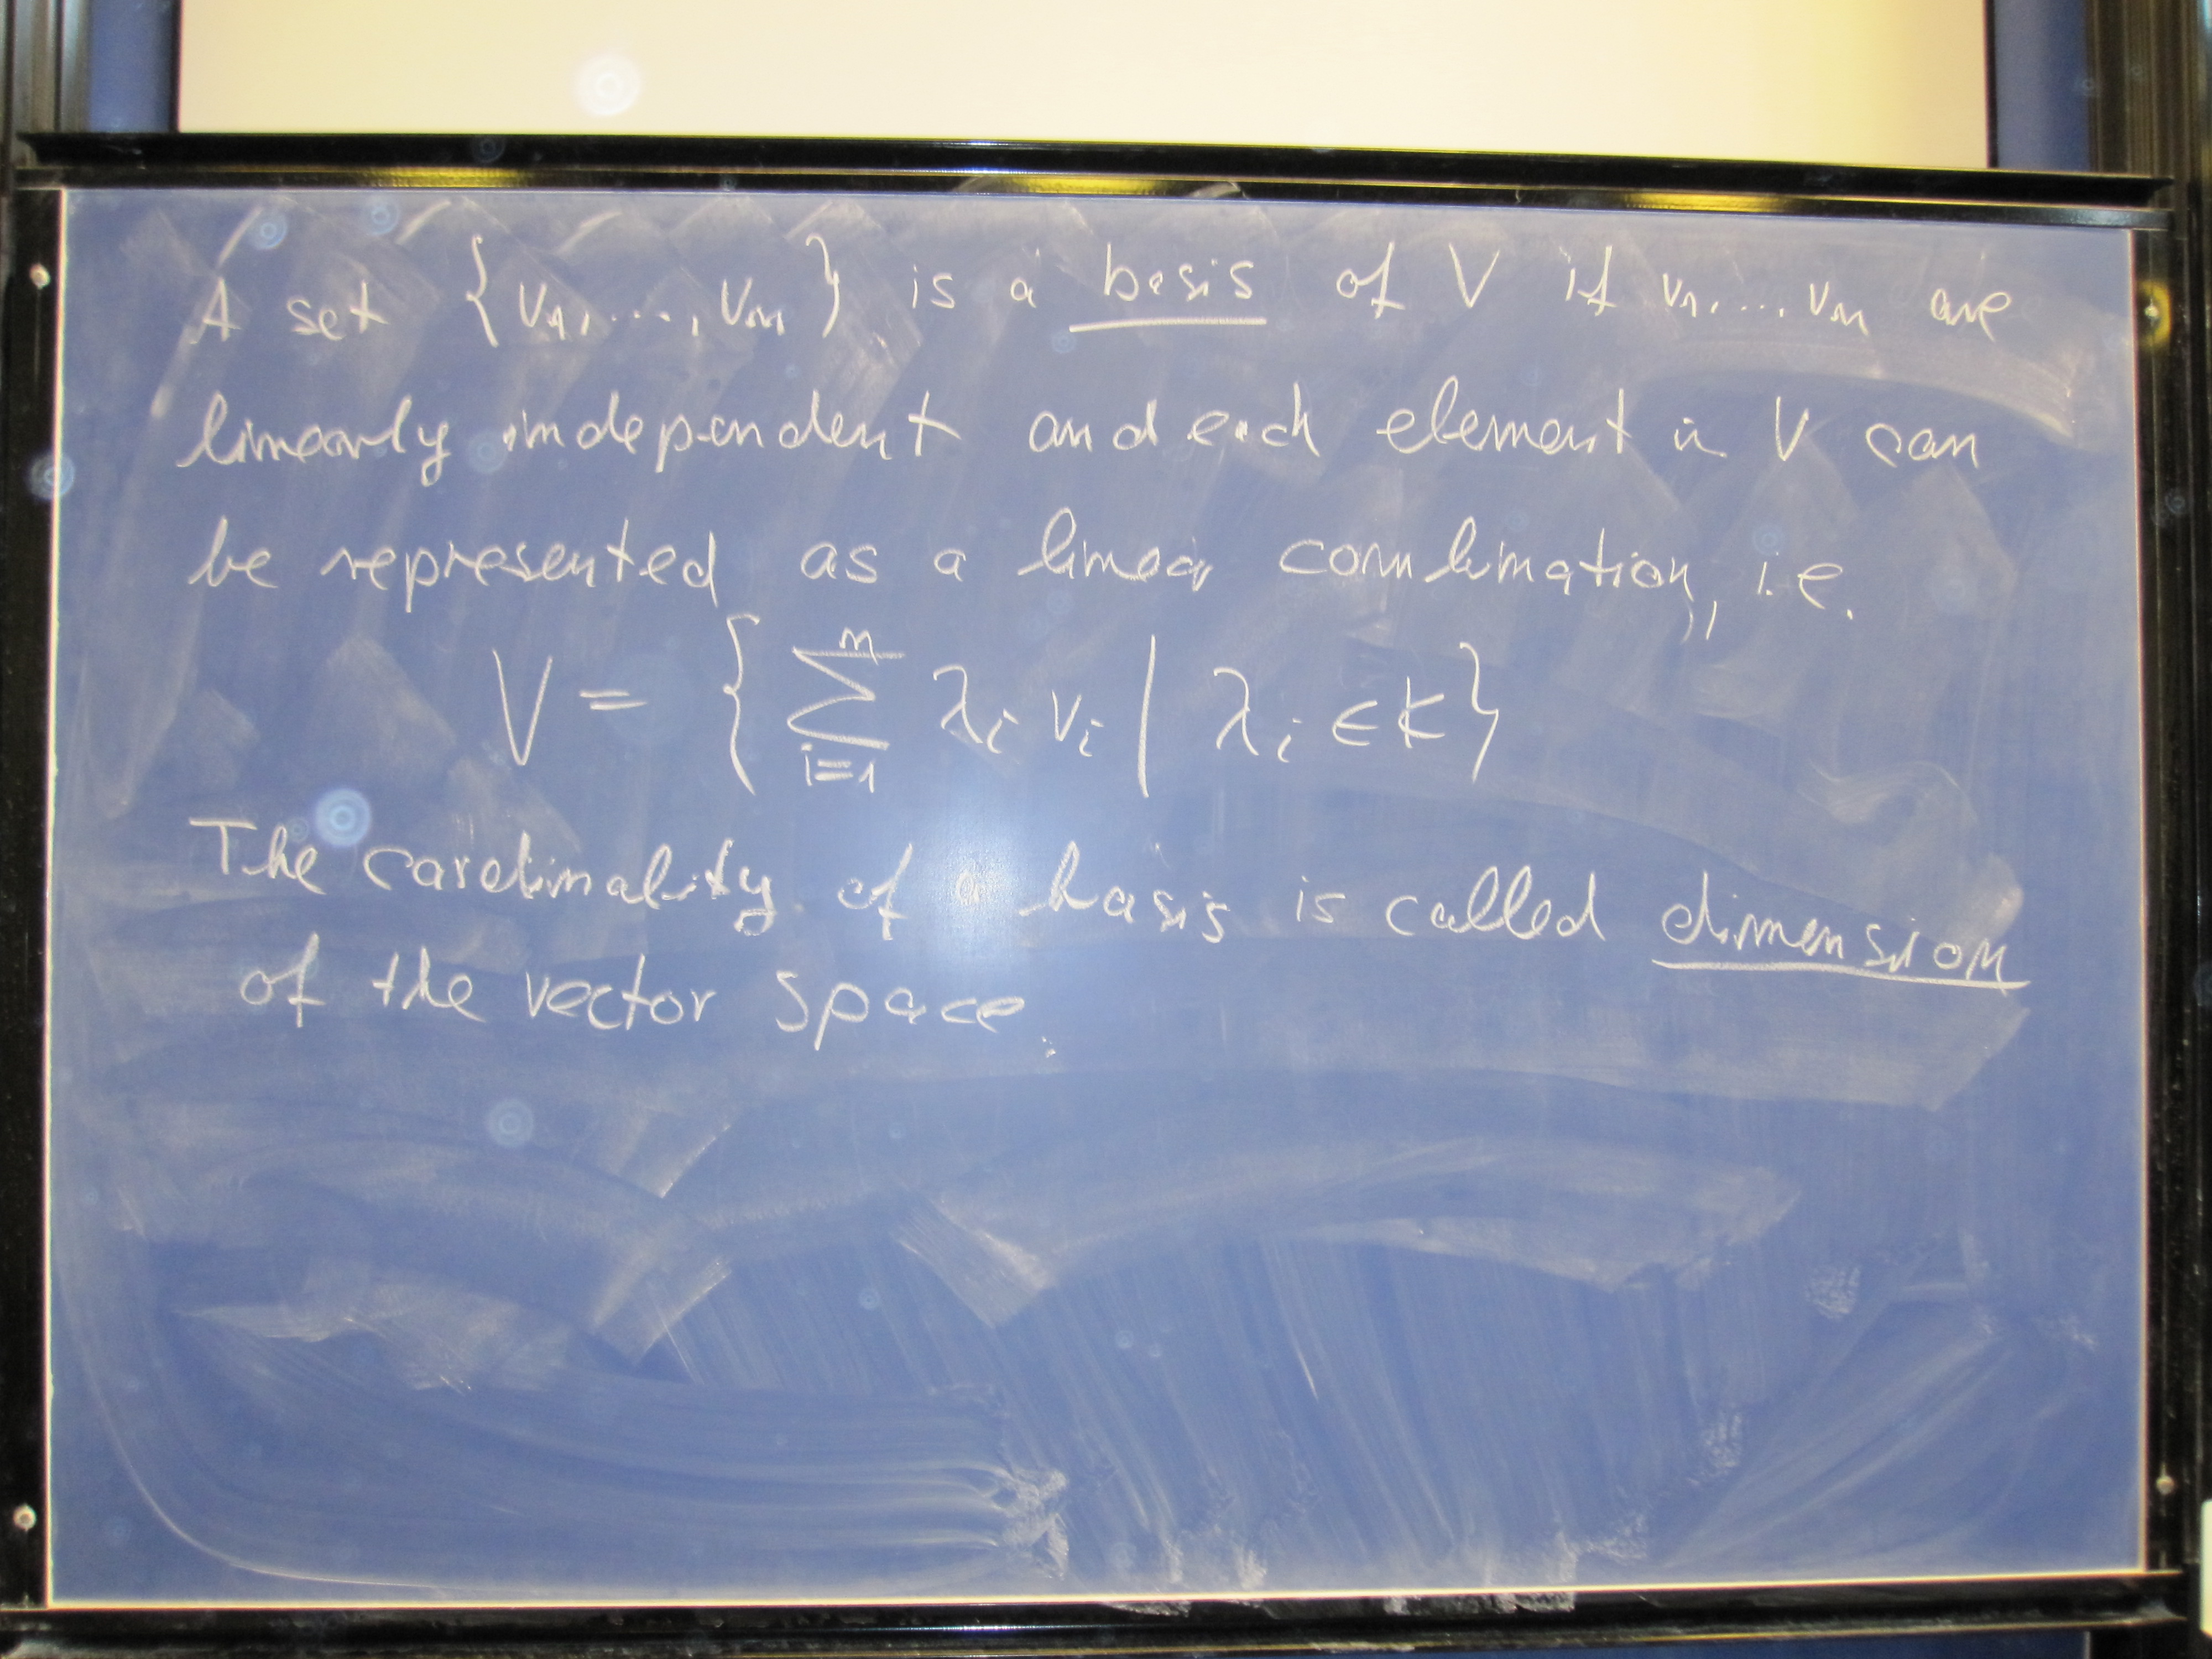 A set {v₁, ..., vₙ} is a basis of V if v₁, ... vₙ are
linearly independent and each element in V can
be represented as a linear combination, i.e.
V = { ∑ᵢ₌₁ⁿ λᵢ vᵢ | λᵢ ∈ K }
The cardinality of a basis is called dimension
of the vector space.